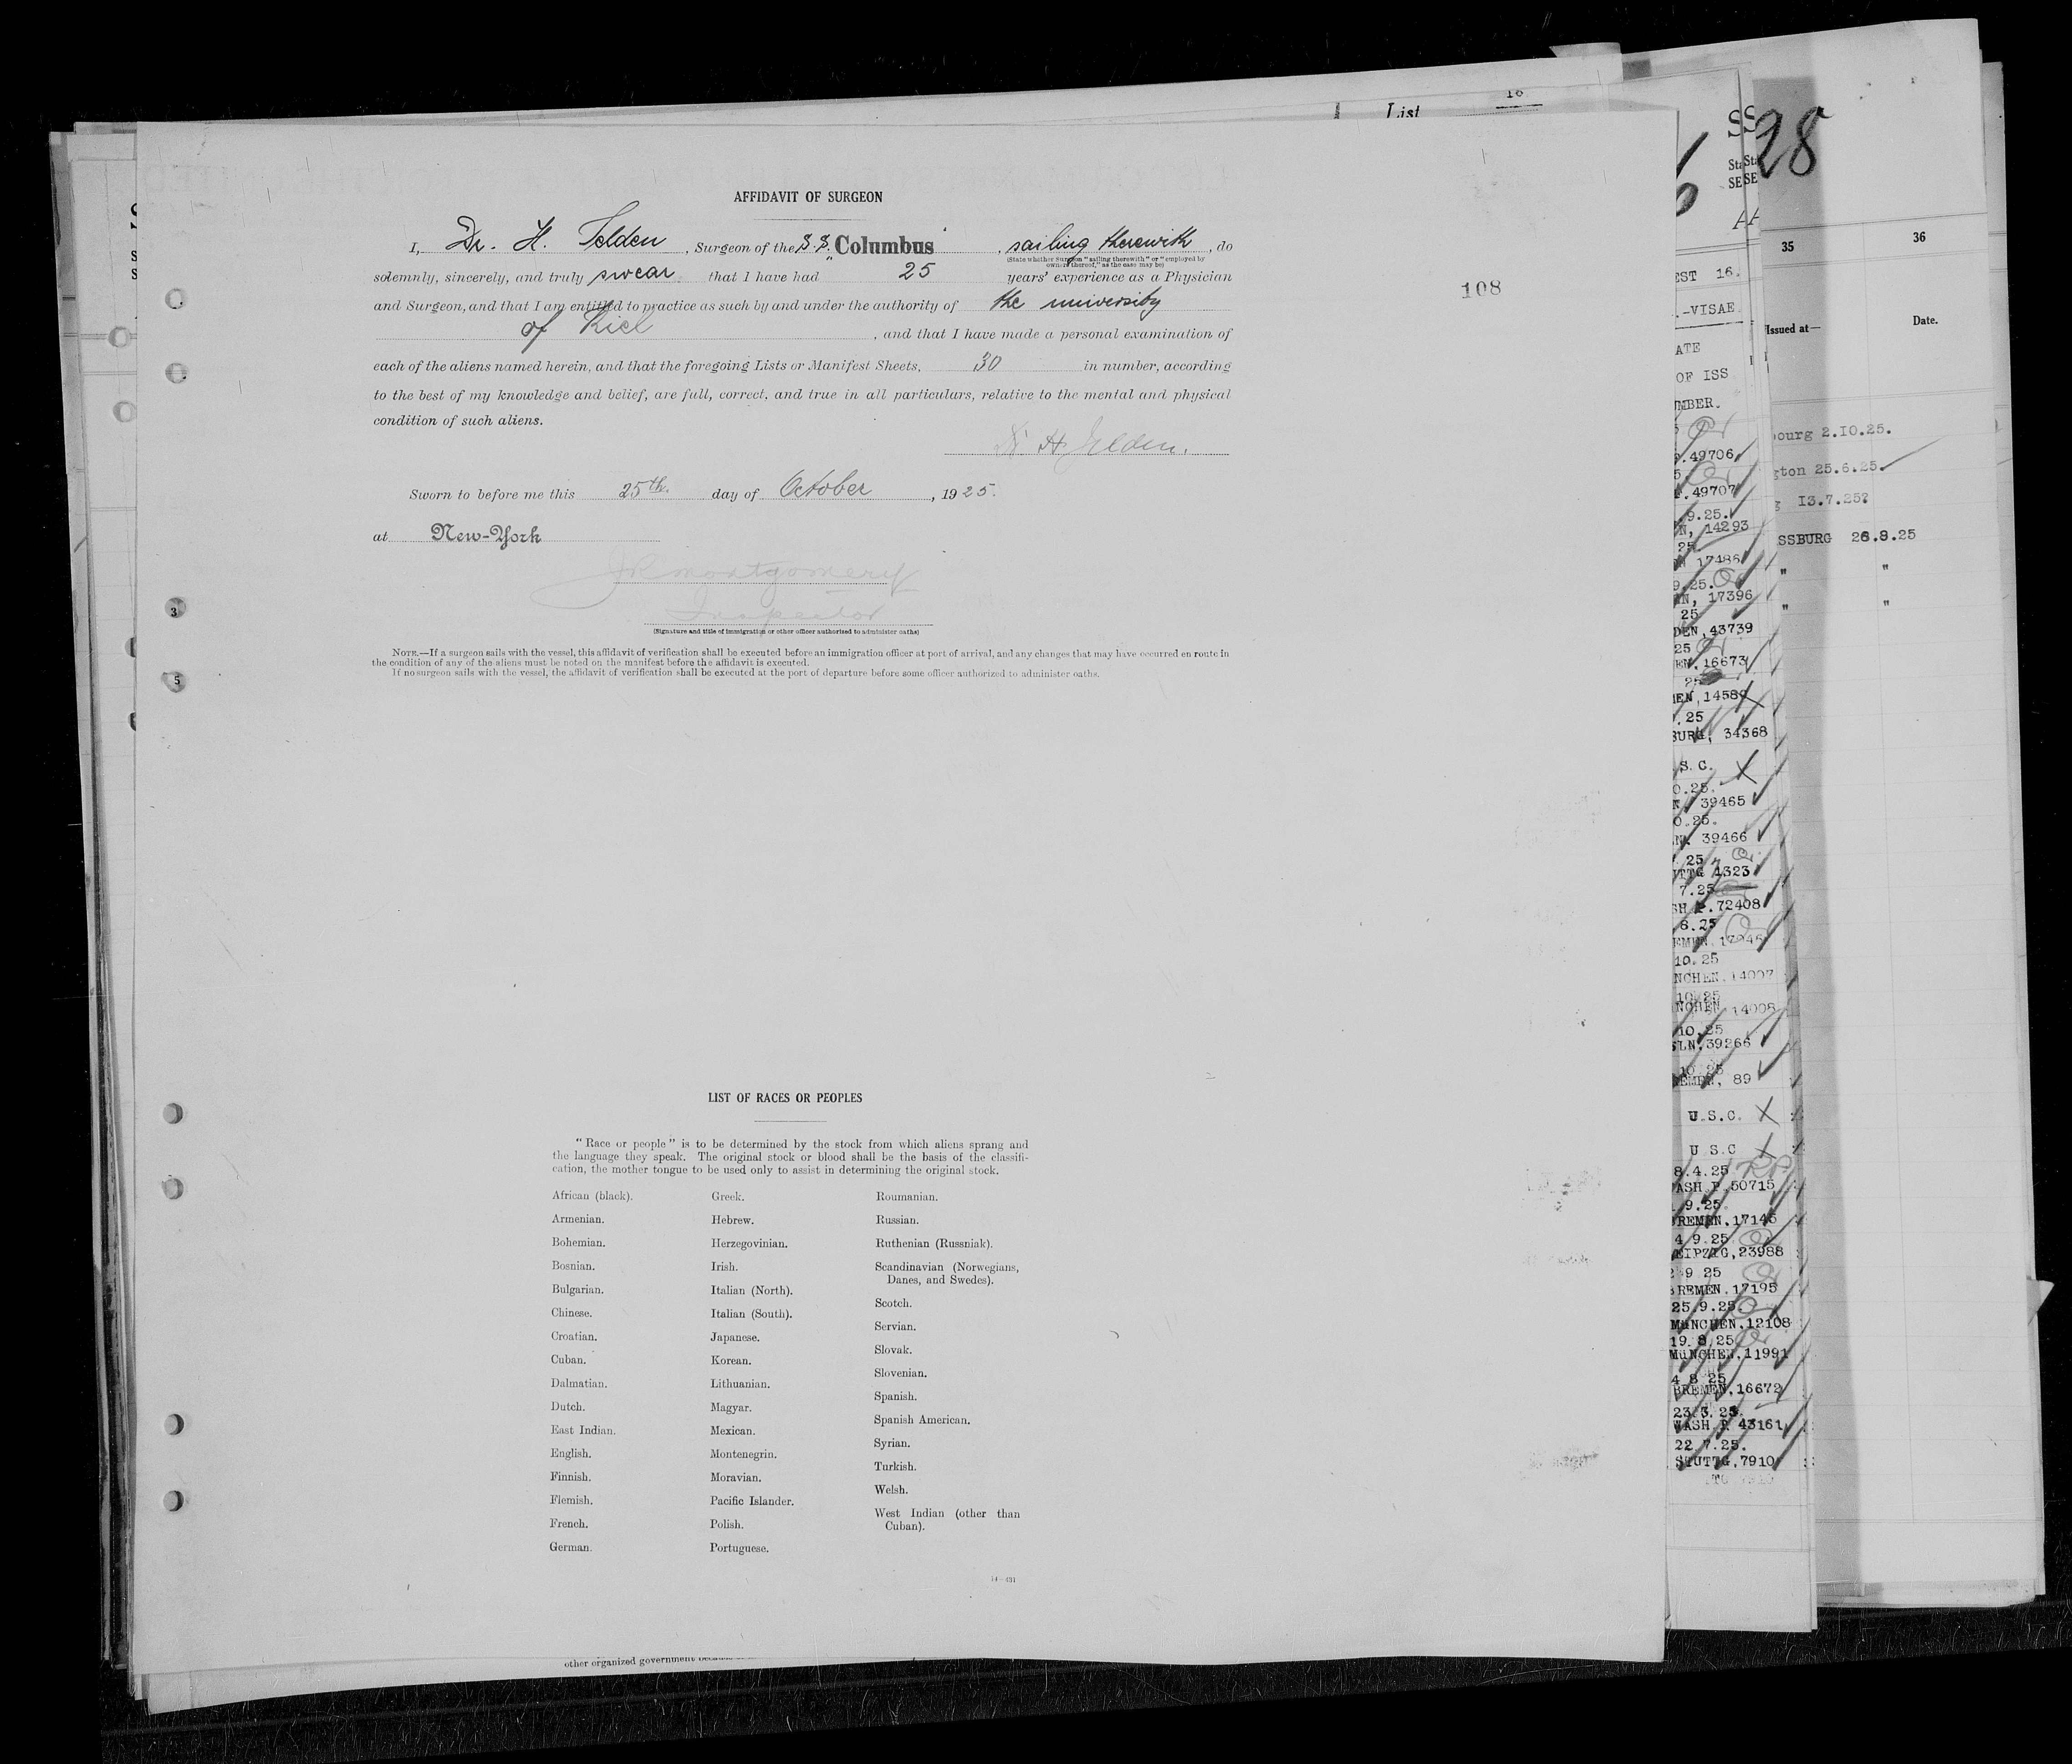 List 16
AFFIDAVIT OF SURGEON
I, Dr. H. Jelden, Surgeon of the S.S. "Columbus", sailing therewith, do
(State whether Surgeon "sailing therewith" or "employed by
owners thereof," as the case may be)
solemnly, sincerely, and truly swear that I have had 25 years' experience as a Physician
and Surgeon, and that I am entitled to practice as such by and under the authority of the university
of Kiel, and that I have made a personal examination of
each of the aliens named herein, and that the foregoing Lists or Manifest Sheets, 30 in number, according
to the best of my knowledge and belief, are full, correct, and true in all particulars, relative to the mental and physical
condition of such aliens.
Dr H Jelden.
Sworn to before me this 25th. day of October, 1925.
at New-York
JR Montgomery
Inspector
(Signature and title of immigration or other officer authorized to administer oaths)
NOTE.—If a surgeon sails with the vessel, this affidavit of verification shall be executed before an immigration officer at port of arrival, and any changes that may have occurred en route in
the condition of any of the aliens must be noted on the manifest before the affidavit is executed.
If no surgeon sails with the vessel, the affidavit of verification shall be executed at the port of departure before some officer authorized to administer oaths.
108
3
5
LIST OF RACES OR PEOPLES
"Race or people" is to be determined by the stock from which aliens sprang and
the language they speak. The original stock or blood shall be the basis of the classifi-
cation, the mother tongue to be used only to assist in determining the original stock.
African (black).
Armenian.
Bohemian.
Bosnian.
Bulgarian.
Chinese.
Croatian.
Cuban.
Dalmatian.
Dutch.
East Indian.
English.
Finnish.
Flemish.
French.
German.
Greek.
Hebrew.
Herzegovinian.
Irish.
Italian (North).
Italian (South).
Japanese.
Korean.
Lithuanian.
Magyar.
Mexican.
Montenegrin.
Moravian.
Pacific Islander.
Polish.
Portuguese.
Roumanian.
Russian.
Ruthenian (Russniak).
Scandinavian (Norwegians,
Danes, and Swedes).
Scotch.
Servian.
Slovak.
Slovenian.
Spanish.
Spanish American.
Syrian.
Turkish.
Welsh.
West Indian (other than
Cuban).
14—431
other organized government
EST 16.
.-VISAE
ATE
OF ISS
MBER.
.49706
.49707
9.25.
N, 14293
25
17486
9.25.
N, 17396
25
DEN, 43739
25
EN, 16673
25
EN, 14580
.25
BURG, 34368
.S.C.
0.25.
39465
0.25.
39466
25
TTG 1323
7.25
SH P.72408
8.25
EMEN, 17046
10.25
NCHEN, 14007
10.25
NCHEN, 14008
10.25
LN, 39266
10.25
EMEN, 89
U.S.C.
U S.C
8.4.25
ASH P.50715
9.25
REMEN, 17145
4 9.25
EIPZIG, 23988
9 25
BREMEN, 17195
25.9.25
MüNCHEN, 12108
19.8.25
MüNCHEN, 11991
4 8 25
BREMEN, 16672
23.3.25.
WASH P. 43161
22.7.25.
STUTTG, 7910
28
35
36
Issued at—
Date.
bourg 2.10.25.
gton 25.6.25.
g 13.7.25?
SSBURG 26.8.25
" "
" "